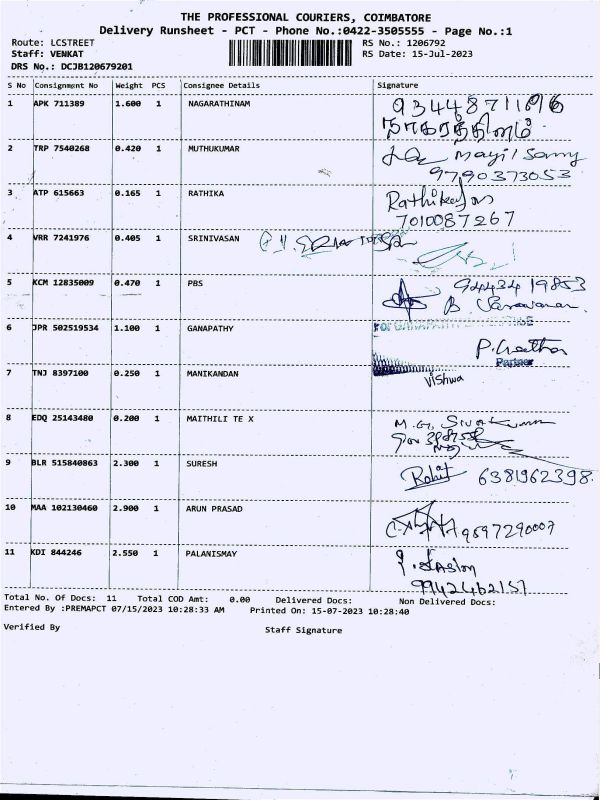 THE PROFESSIONAL COURIERS, COIMBATORE
Delivery Runsheet - PCT - Phone No.:0422-3505555 - Page No.:1
Route: LCSTREET RS No.: 1206792
Staff: VENKAT RS Date: 15-Jul-2023
DRS No.: DCJB120679201
S No Consignment No Weight PCS Consignee Details Signature
1 APK 711389 1.600 1 NAGARATHINAM
நாகரத்தினம்
2 TRP 7540268 0.420 1 MUTHUKUMAR Mayilsamy
9790373053
3 ATP 615663 0.165 1 RATHIKA
7010087267
4 VRR 7241976 0.405 1 SRINIVASAN
5 KCM 12835009 0.470 1 PBS 94434 19853
B
6 JPR 502519534 1.100 1 GANAPATHY
Partner
7 TNJ 8397100 0.250 1 MANIKANDAN
Vishwa
8 EDQ 25143480 0.200 1 MAITHILI TE X
9 BLR 515840863 2.300 1 SURESH Rohit 6381962398
10 MAA 102130460 2.900 1 ARUN PRASAD 9597290007
11 KDI 844246 2.550 1 PALANISMAY
9942462157
Total No. Of Docs: 11 Total COD Amt: 0.00 Delivered Docs: Non Delivered Docs:
Entered By :PREMAPCT 07/15/2023 10:28:33 AM Printed On: 15-07-2023 10:28:40
Verified By Staff Signature